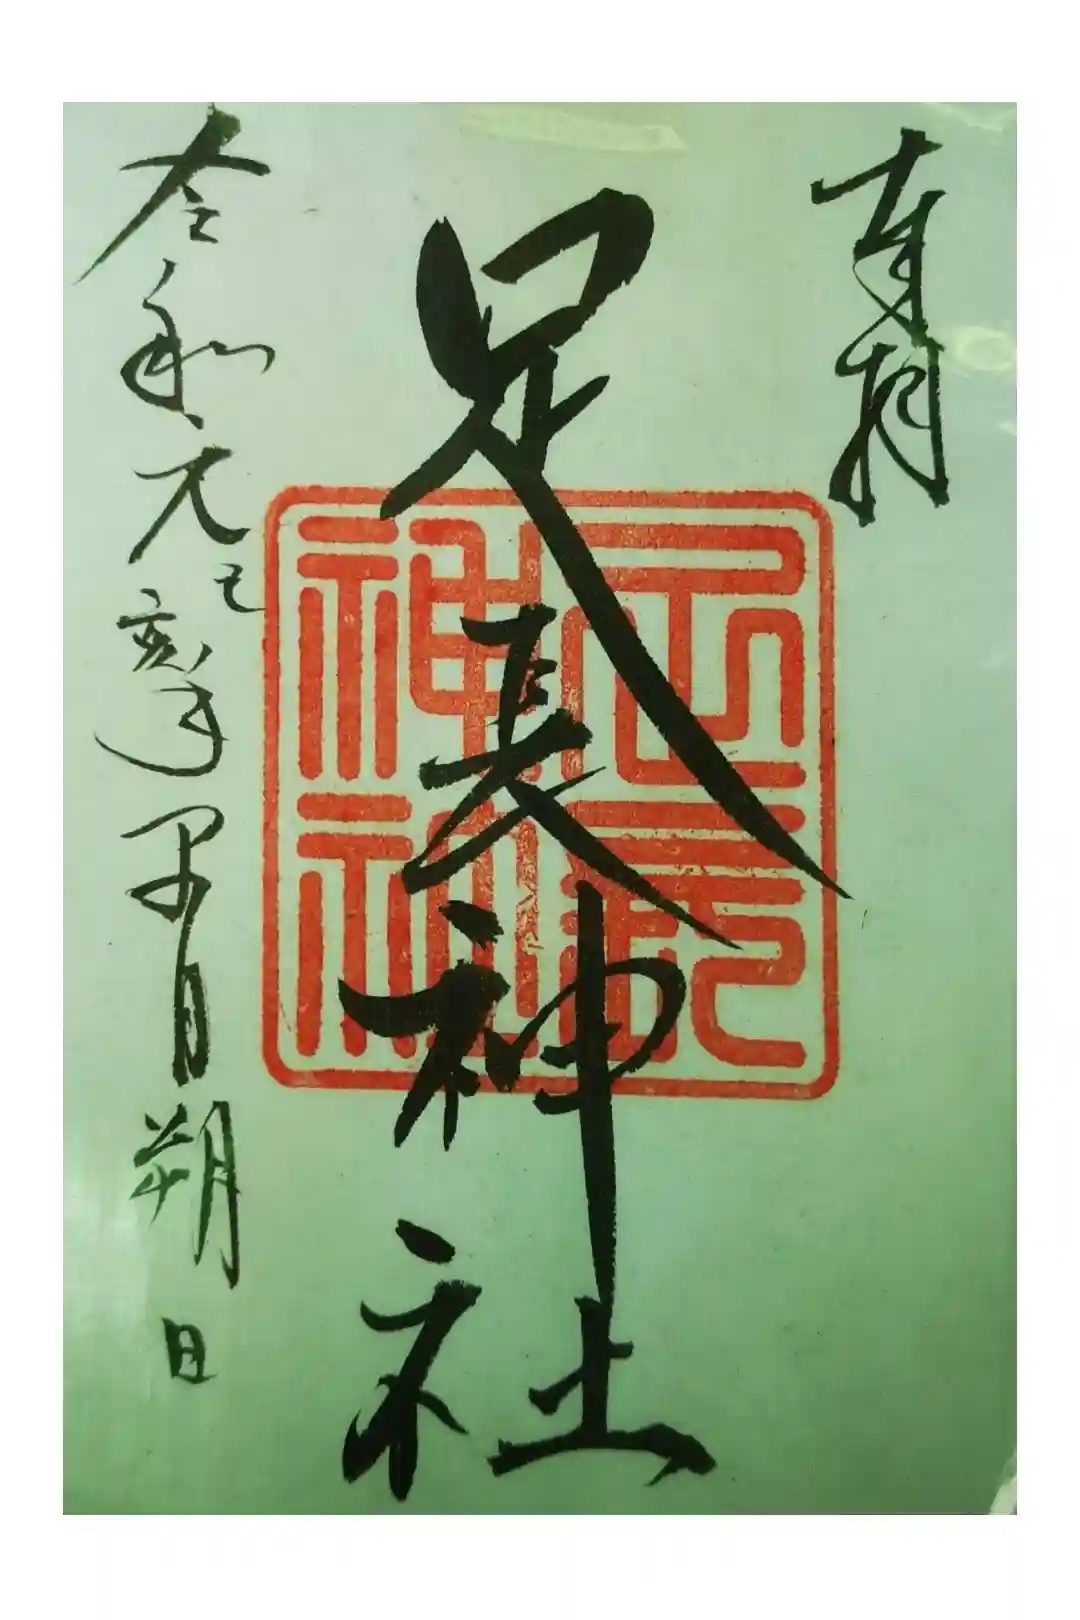 奉拝
足長神社
足長
神社
令和元己亥年早月朔日